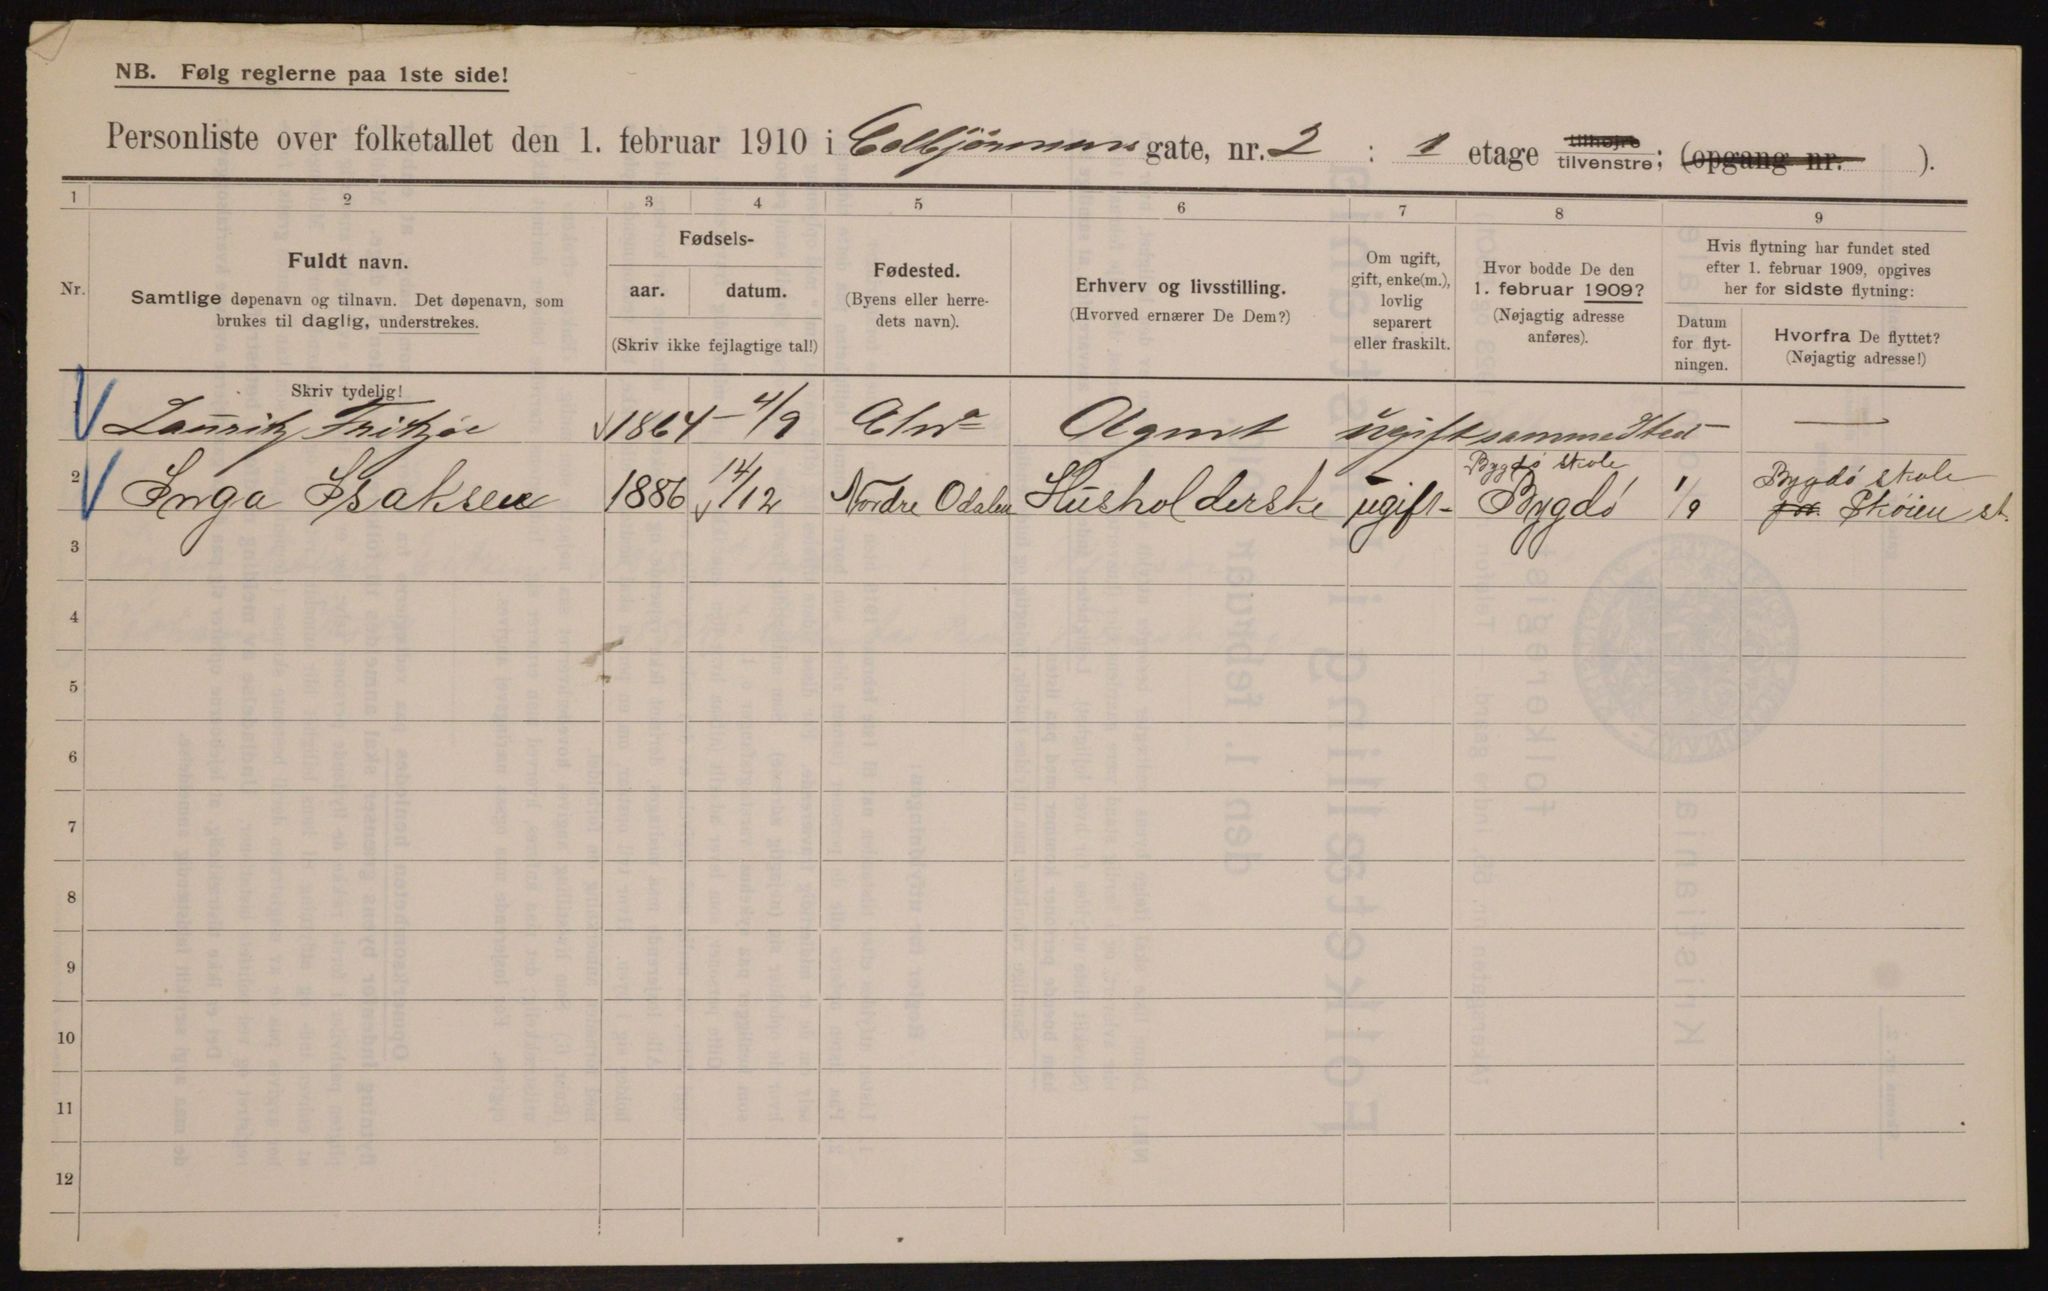 NB. Følg reglerne paa 1ste side!
Personliste over folketallet den 1. februar 1910 i Colbjørnsens gate, nr. 2 : 1 etage tilhøjre tilvenstre; (opgang nr. ).
1 2 3 4 5 6 7 8 9
Nr.
Fuldt navn.
Samtlige døpenavn og tilnavn. Det døpenavn, som
brukes til daglig, understrekes.
Skriv tydelig!
Fødsels-
aar. datum.
(Skriv ikke fejlagtige tal!)
Fødested.
(Byens eller herre-
dets navn).
Erhverv og livsstilling.
(Hvorved ernærer De Dem?)
Om ugift,
gift, enke(m.),
lovlig
separert
eller fraskilt.
Hvor bodde De den
1. februar 1909?
(Nøjagtig adresse
anføres).
Hvis flytning har fundet sted
efter 1. februar 1909, opgives
her for sidste flytning:
Datum
for flyt-
ningen.
Hvorfra De flyttet?
(Nøjagtig adresse!)
Lauritz Fritzøe 1864 – 4/9 Chra Agent ugift sammested —
2 Inga Isaksen 1886 14/12 Nordre Odalen Husholderske ugift – Bygdø skole Bygdø 1/9 Bygdø skole Skøien st.
3
4
5
6
7
8
9
10
11
12